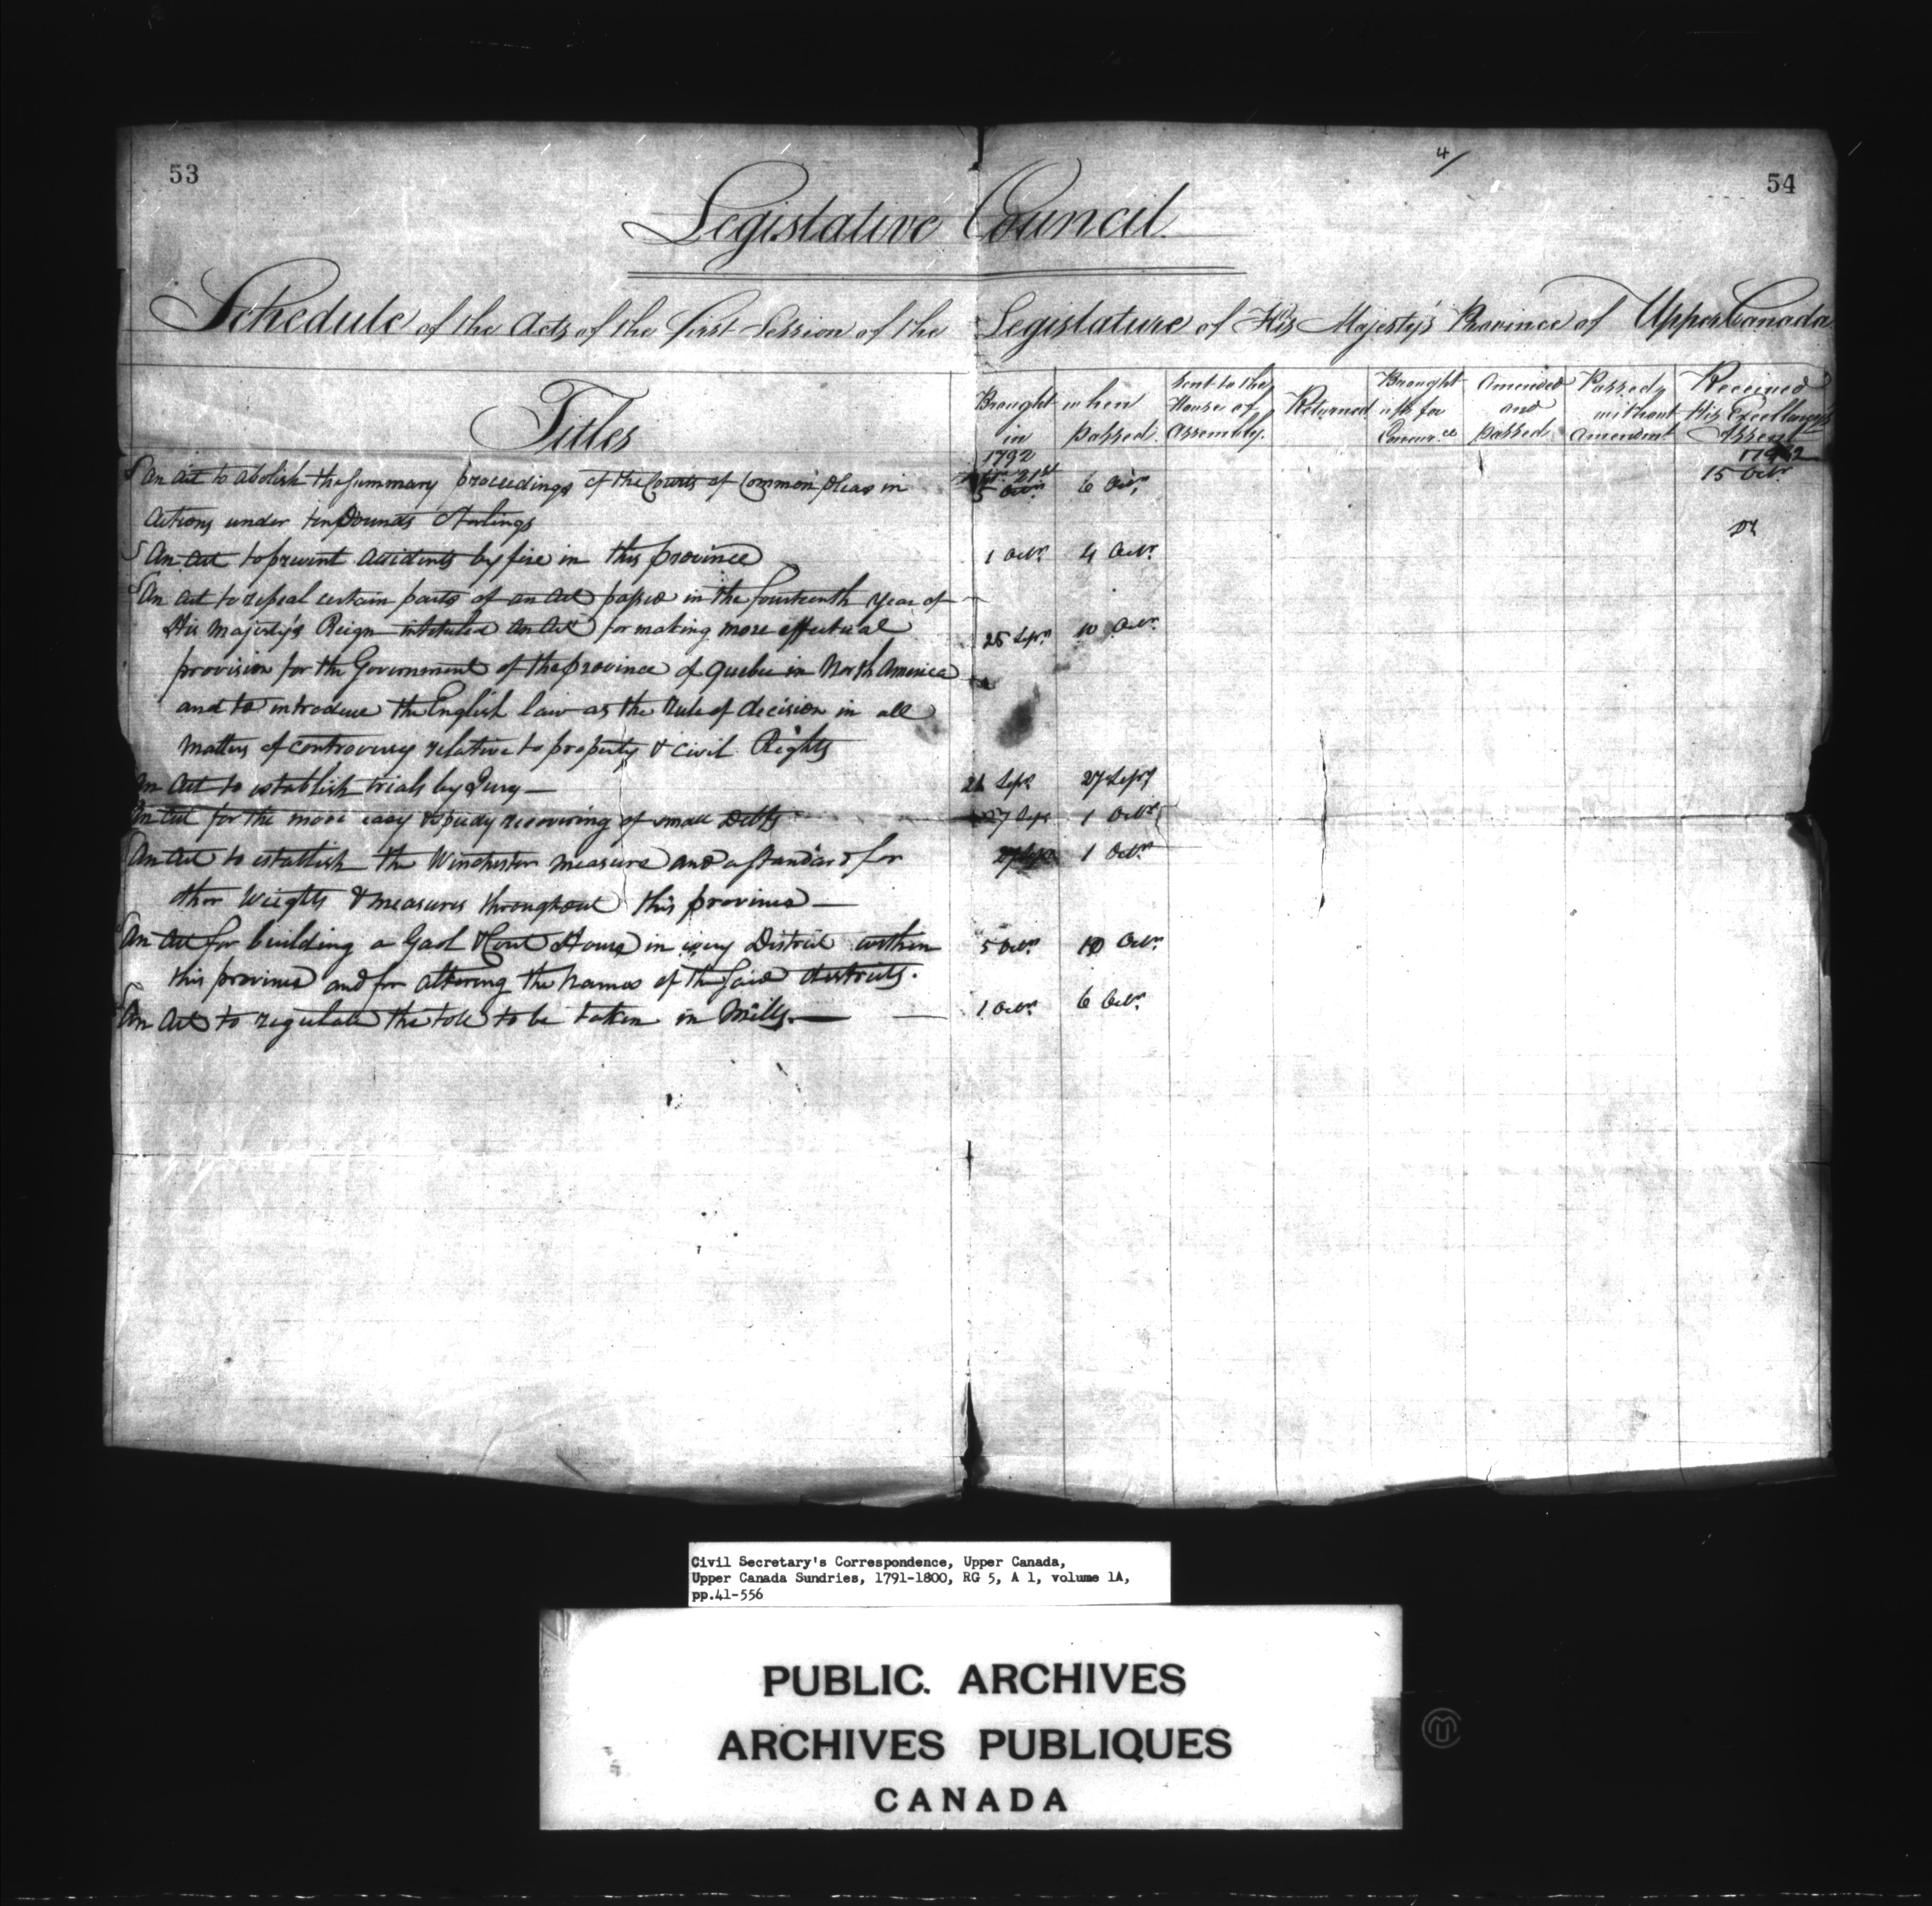 53
4/
54
Legislative Council
Schedule of the Acts of the first Session of the Legislature of His Majesty's Province of Upper Canada
Titles
Brought in
when passed
Sent to the House of Assembly.
Returned
Brought up for Concur.ce
Amended and passed
Passed without Amendment
Received His Excellency's Assent
1792
1792
An Act to abolish the Summary proceedings of the Courts of Common pleas in 21st 5 Octr. 6 Octr. 15 Octr.
Actions under ten Pounds Sterling
An Act to prevent accidents by fire in this province 1 Octr. 4 Octr. Do
An Act to repeal certain parts of an Act passed in the fourteenth Year of
His Majesty's Reign intituled An Act for making more effectual 26 Septr. 10 Octr.
provision for the Government of the province of Quebec in North America
and to introduce the English law as the rule of decision in all
Matters of controversy relative to property & civil Rights
An Act to establish trials by Jury — Septr 27 Septr
An Act for the more easy & speedy recovering of small Debts 27 Septr 1 Octr.
An Act to establish the Winchester measure and a standard for 27 Septr 1 Octr.
other Weights & measures throughout this province —
An Act for building a Gaol & Court House in every District within 5 Octr. 10 Octr.
this province and for altering the names of the said districts.
An Act to regulate the tole to be taken in Mills. — 1 Octr. 6 Octr.
Civil Secretary's Correspondence, Upper Canada,
Upper Canada Sundries, 1791-1800, RG 5, A 1, volume 1A,
pp.41-556
PUBLIC. ARCHIVES
ARCHIVES PUBLIQUES
CANADA